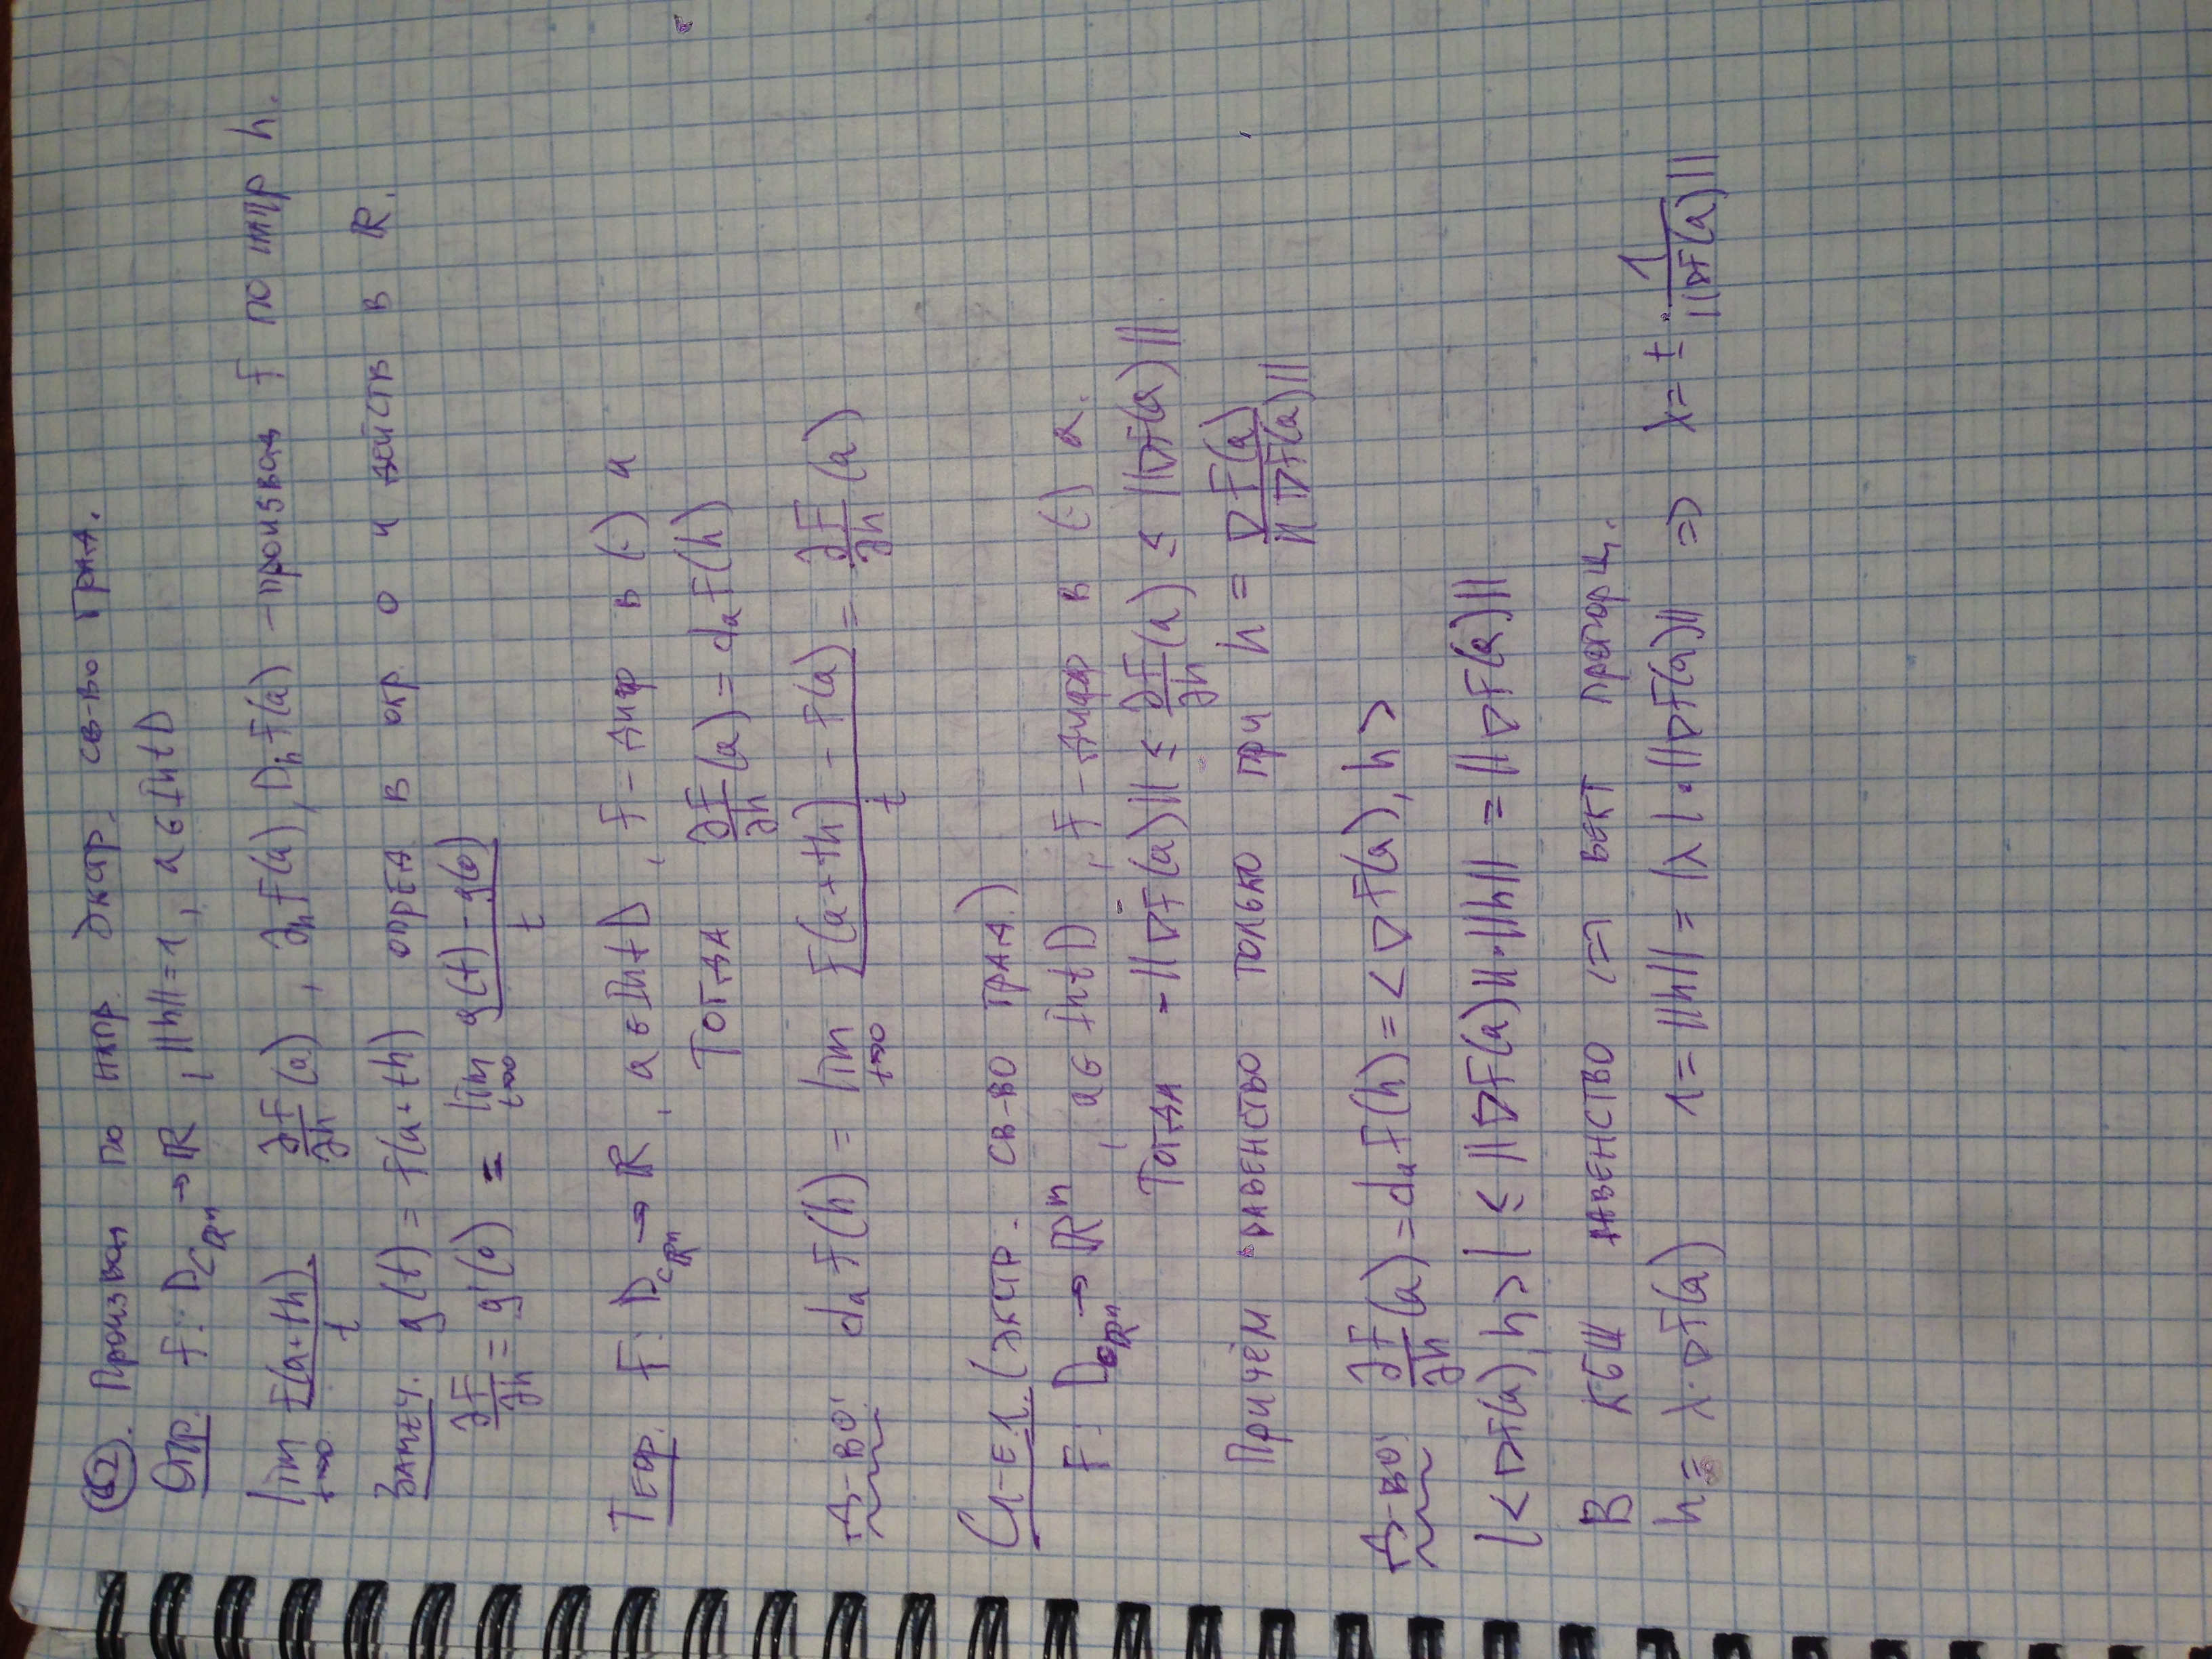 62. Производ по напр. Экстр. св-во град.
Опр. F: D⊂ℝⁿ → ℝ, ||h||=1, a ∈ Int D
lim t→0 F(a+th). / t ∂F/∂h (a), ∂ₕF(a), DₕF(a) – производ F по напр h.
Замеч. g(t) = F(a+th) опред в окр. 0 и действ в ℝ.
∂F/∂h = g'(0) = lim t→0 (g(t) – g(0)) / t
Теор. F: D⊂ℝⁿ → ℝ, a ∈ Int D, F – диф в (·) a
Тогда ∂F/∂h (a) = dₐF(h)
Д-во: dₐF(h) = lim t→0 (F(a+th) – F(a)) / t = ∂F/∂h (a)
Сл-е 1. (экстр. св-во град.)
F: D⊂ℝⁿ → ℝᵐ, a ∈ Int D, F – дифф в (·) a.
Тогда -||∇F(a)|| ≤ ∂F/∂h (a) ≤ ||∇F(a)||
Причём равенство только при h = ∇F(a) / ||∇F(a)||
Д-во: ∂F/∂h (a) = dₐF(h) = <∇F(a), h>
|<∇F(a), h>| ≤ ||∇F(a)||·||h|| = ||∇F(a)||
В КБШ равенство <=> вект пропорц.
h = λ·∇F(a) 1 = ||h|| = |λ|·||∇F(a)|| => λ = ± 1 / ||∇F(a)||